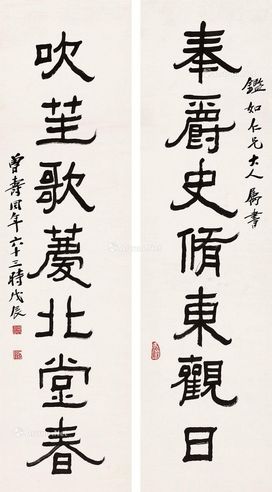 鑑如仁兄大人屬書
奉爵史脩東觀日
吹笙歌慶北堂春
壽同年六十三時戊辰